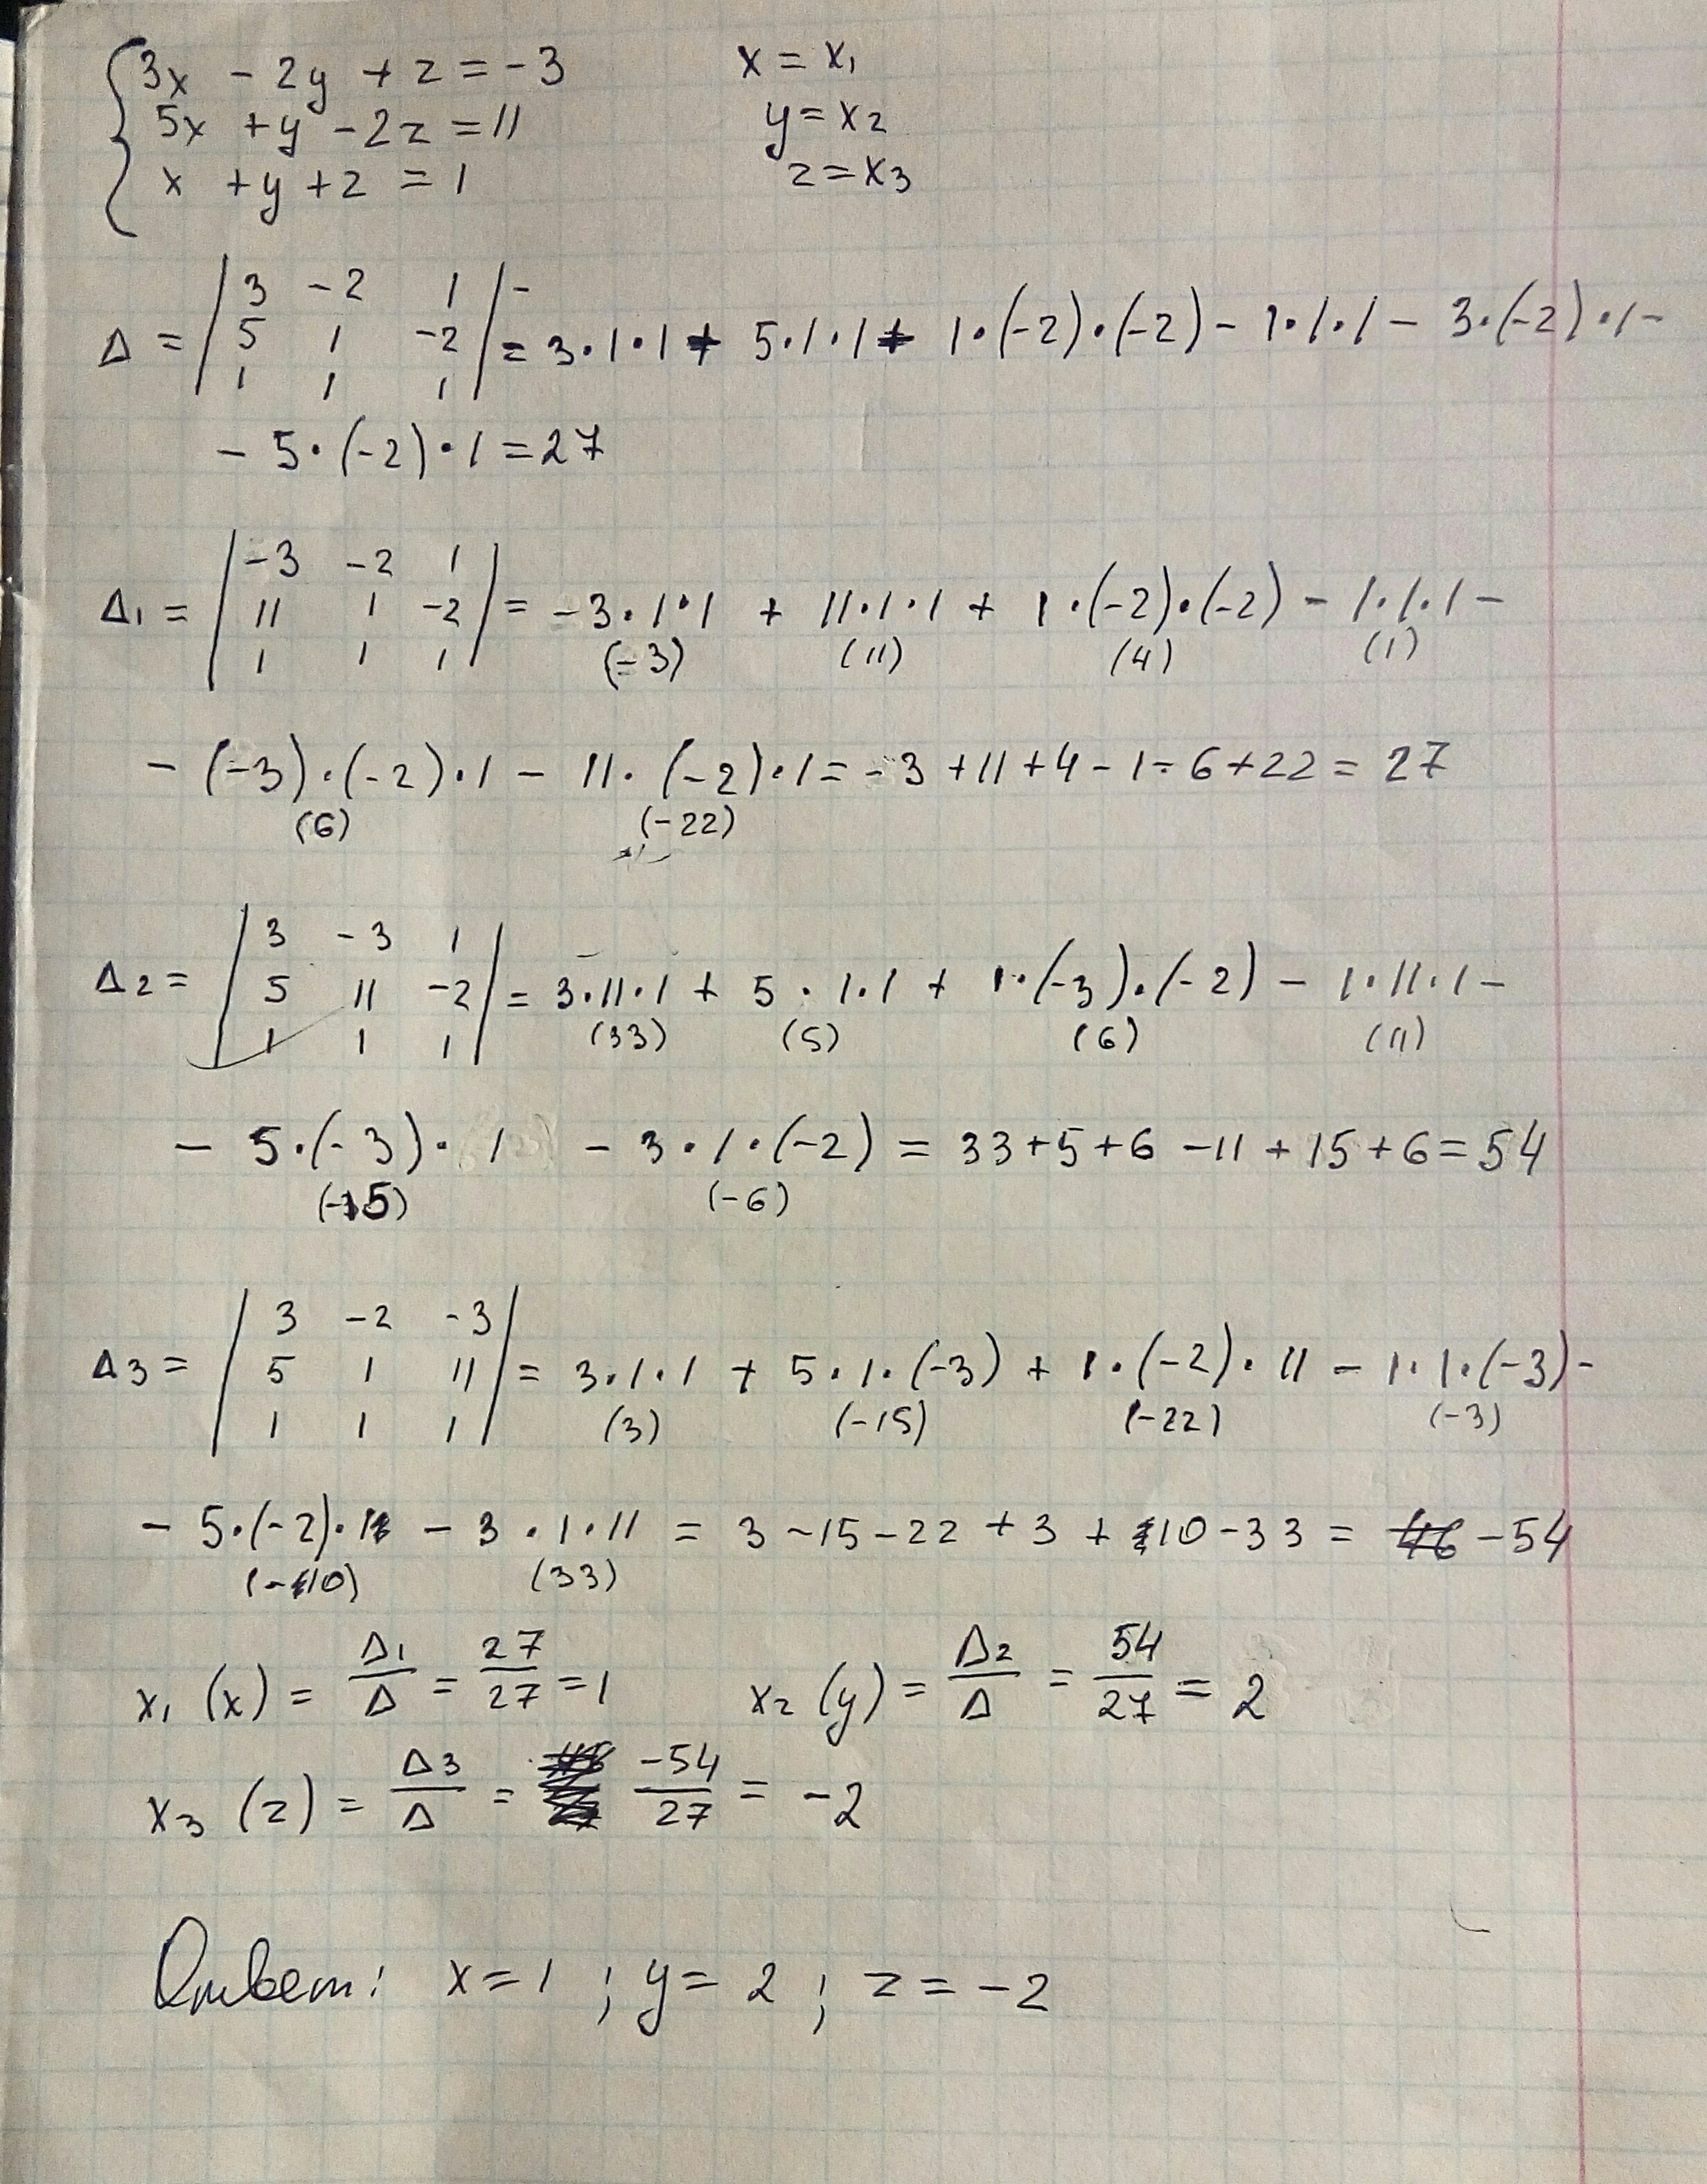 3x - 2y + z = -3   x = x₁
5x + y - 2z = 11   y = x₂
x + y + z = 1   z = x₃
3 -2 1 -
Δ = 5 1 -2 = 3·1·1 + 5·1·1 + 1·(-2)·(-2) - 1·1·1 - 3·(-2)·1 -
1 1 1
- 5·(-2)·1 = 27
-3 -2 1
Δ₁ = 11 1 -2 = -3·1·1 + 11·1·1 + 1·(-2)·(-2) - 1·1·1 -
1 1 1 (-3) (11) (4) (1)
- (-3)·(-2)·1 - 11·(-2)·1 = -3 + 11 + 4 - 1 - 6 + 22 = 27
(6) (-22)
3 -3 1
Δ₂ = 5 11 -2 = 3·11·1 + 5·1·1 + 1·(-3)·(-2) - 1·11·1 -
1 1 1 (33) (5) (6) (11)
- 5·(-3)·1 - 3·1·(-2) = 33 + 5 + 6 - 11 + 15 + 6 = 54
(-15) (-6)
3 -2 -3
Δ₃ = 5 1 11 = 3·1·1 + 5·1·(-3) + 1·(-2)·11 - 1·1·(-3) -
1 1 1 (3) (-15) (-22) (-3)
- 5·(-2)·1 - 3·1·11 = 3 - 15 - 22 + 3 + 10 - 33 = -54
(-10) (33)
x₁ (x) = Δ₁/Δ = 27/27 = 1   x₂ (y) = Δ₂/Δ = 54/27 = 2
x₃ (z) = Δ₃/Δ = -54/27 = -2
Ответ: x = 1 ; y = 2 ; z = -2